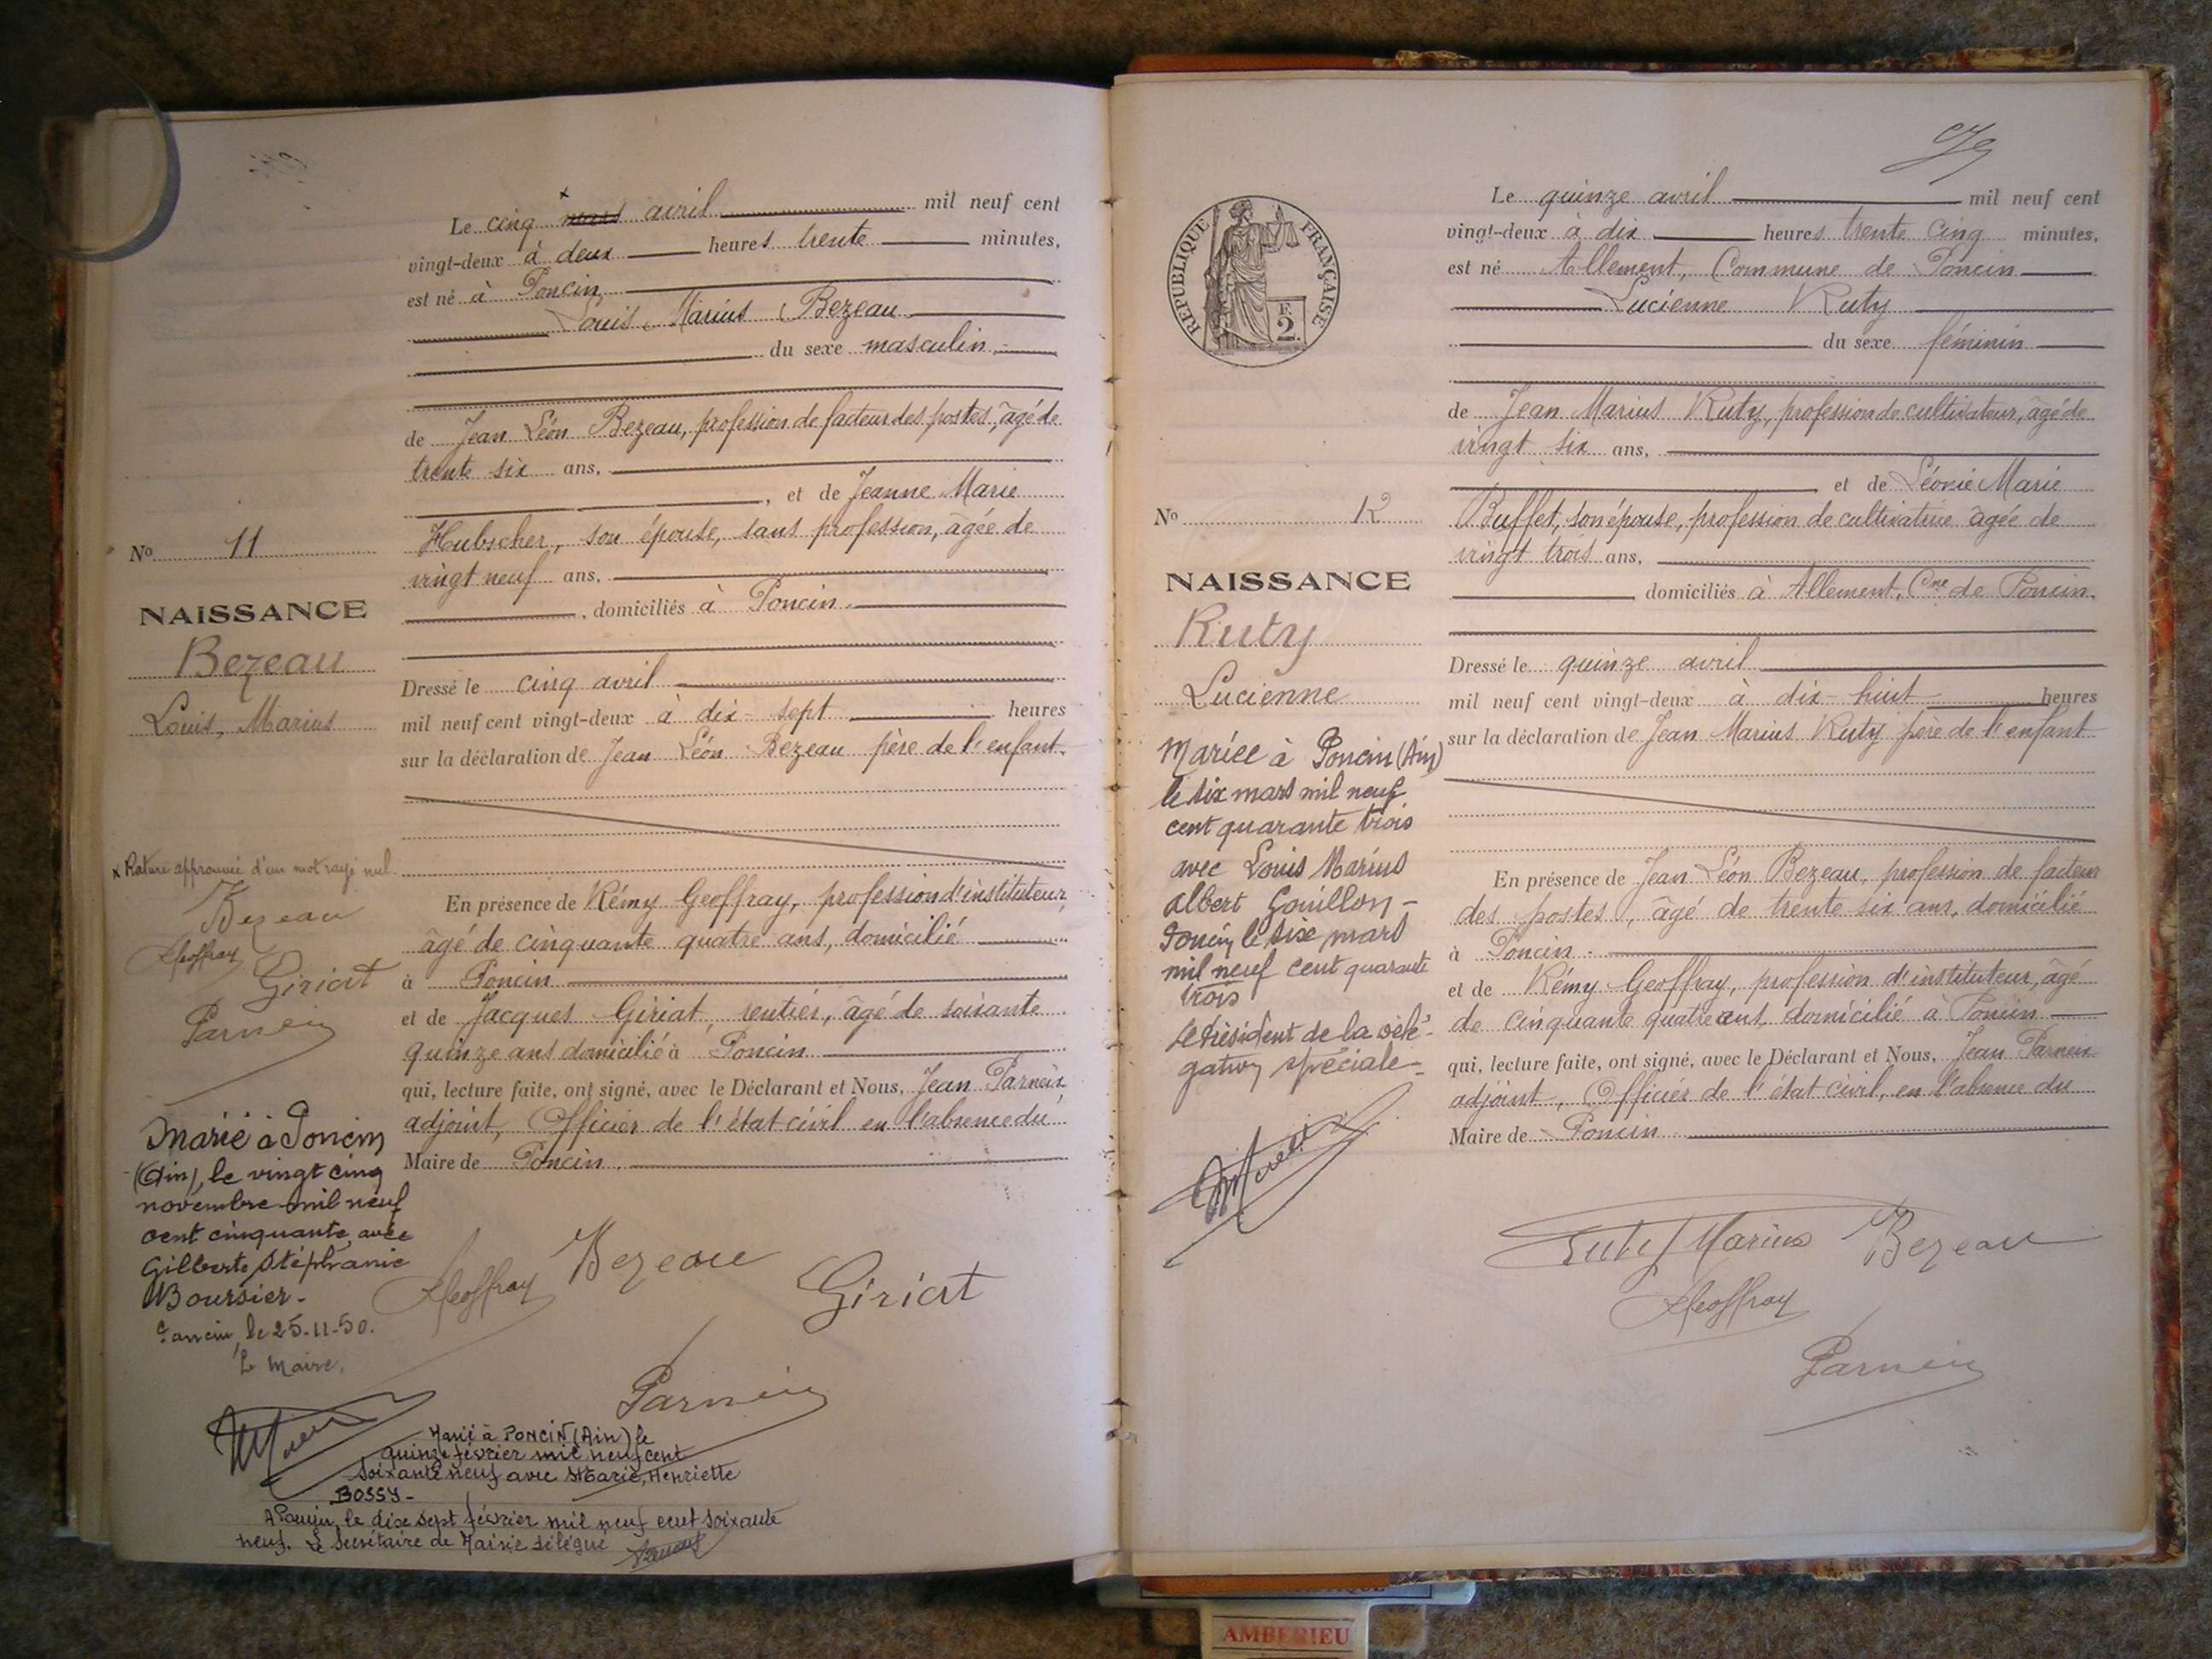 Le cinq mars avril mil neuf cent
vingt-deux à deux heures trente minutes,
est né à Poncin
Louis Marius Bezeau
du sexe masculin
de Jean Léon Bezeau, profession de facteur des postes, âgé de
trente six ans,
, et de Jeanne Marie
Hubscher, son épouse, sans profession, âgée de
vingt neuf ans,
, domiciliés à Poncin.
Dressé le cinq avril
mil neuf cent vingt-deux à dix-sept heures
sur la déclaration de Jean Léon Bezeau père de l'enfant.
En présence de Rémy Geoffray, profession d'instituteur,
âgé de cinquante quatre ans, domicilié
à Poncin
et de Jacques Giriat, rentier, âgé de soixante
quinze ans domicilié à Poncin
qui, lecture faite, ont signé, avec le Déclarant et Nous, Jean Parneix
adjoint, Officier de l'état civil en l'absence du
Maire de Poncin.
Geoffray Bezeau Giriat
Parneix
No 11
NAISSANCE
Bezeau
Louis, Marius
x Rature approuvée d'un mot rayé nul.
Bezeau
Geoffray
Giriat
Parneix
Marié à Poncin
(Ain), le vingt cinq
novembre mil neuf
cent cinquante, avec
Gilberte Stéphanie
Boursier.
Poncin, le 25-11-50.
Le Maire,
Marié à PONCIN (Ain) le
quinze février mil neuf cent
soixante neuf avec Marie, Henriette
BOSSY-
A Poncin, le dix sept février mil neuf cent soixante
neuf. Le Secrétaire de Mairie délégué
REPUBLIQUE FRANÇAISE
2 F.
Le quinze avril mil neuf cent
vingt-deux à dix heures trente cinq minutes,
est né Allement, Commune de Poncin
Lucienne Ruty
du sexe féminin
de Jean Marius Ruty, profession de cultivateur, âgé de
vingt six ans,
et de Léonie Marie
Buffet, son épouse, profession de cultivatrice âgée de
vingt trois ans,
domiciliés à Allement, Cne de Poncin.
Dressé le quinze avril
mil neuf cent vingt-deux à dix-huit heures
sur la déclaration de Jean Marius Ruty père de l'enfant
En présence de Jean Léon Bezeau, profession de facteur
des postes, âgé de trente six ans, domicilié
à Poncin.
et de Rémy Geoffray, profession d'instituteur, âgé
de cinquante quatre ans, domicilié à Poncin
qui, lecture faite, ont signé, avec le Déclarant et Nous, Jean Parneix
adjoint, Officier de l'état civil, en l'absence du
Maire de Poncin
Ruty Marius Bezeau
Geoffray
Parneix
No 12
NAISSANCE
Ruty
Lucienne
Mariée à Poncin (Ain)
le six mars mil neuf
cent quarante trois
avec Louis Marius
Albert Gouillon -
Poncin le six mars
mil neuf cent quarante
trois
Le Président de la délé-
gation spéciale -
AMBERIEU